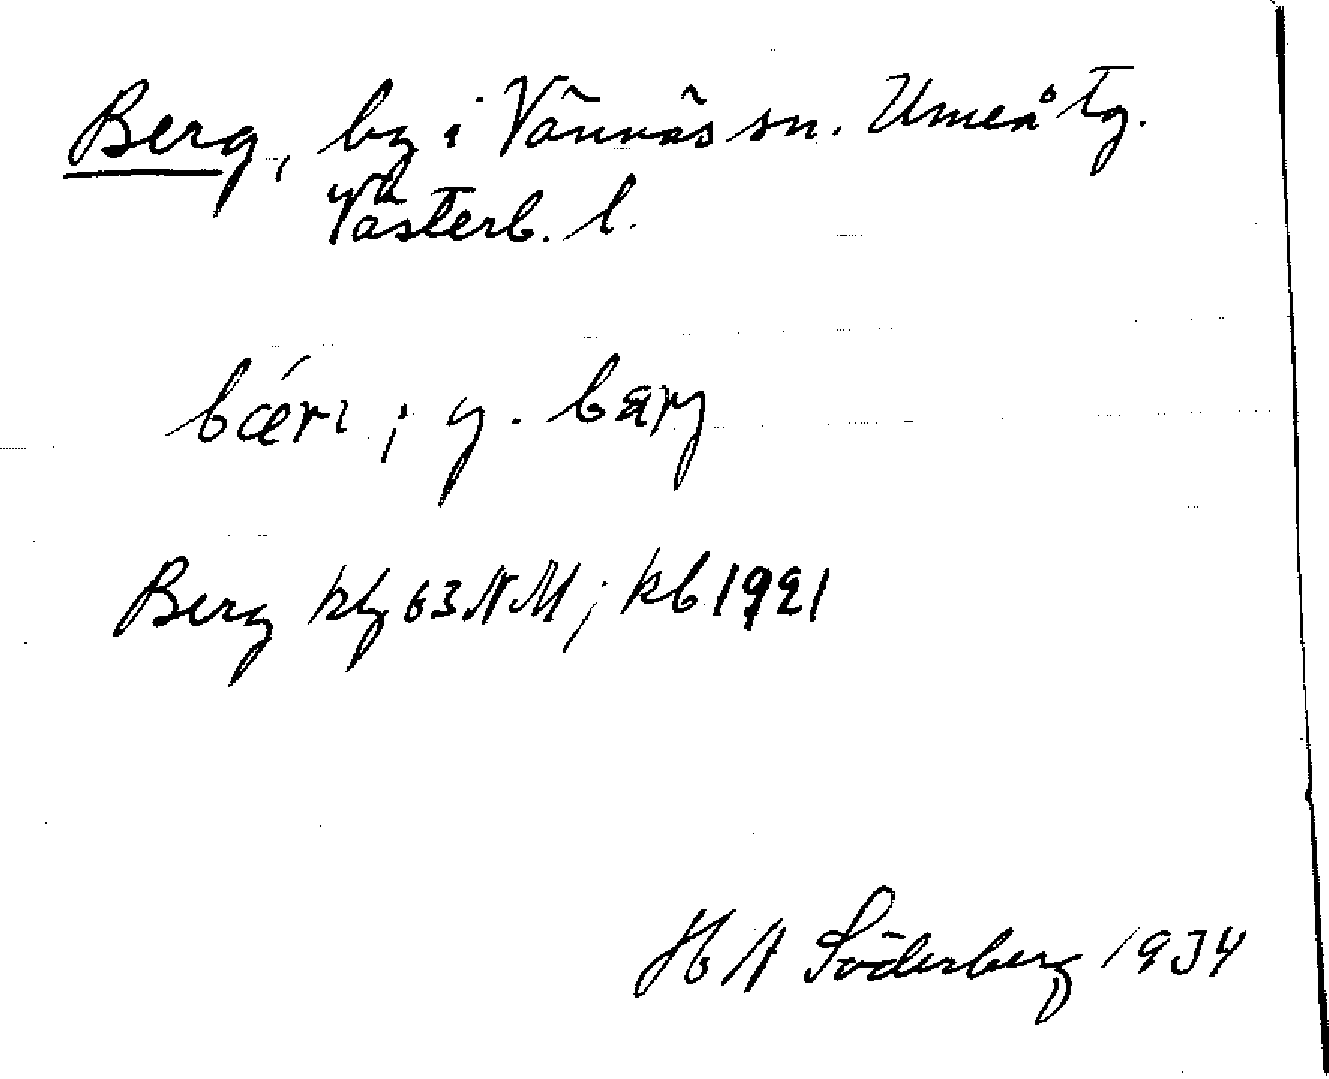 Berg, by i Vännäs sn. Umeå tg.
Västerb. l.
bǽrɩ; y. bærj
Berg kbl 63 NM; kb 1921
H N Söderberg 1934